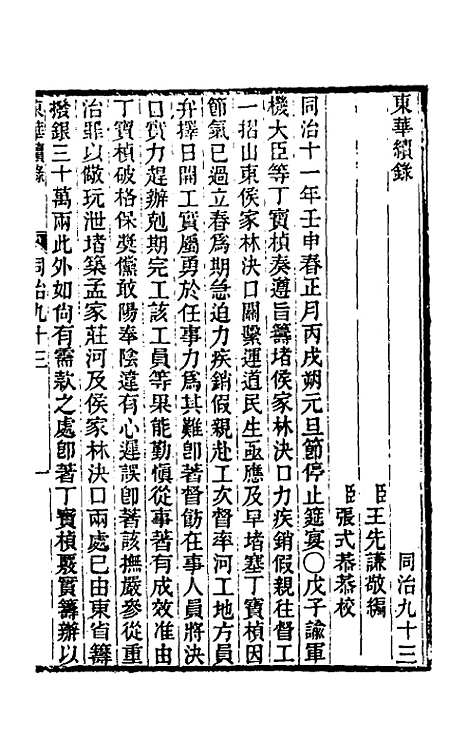 東華續錄
同治九十三
臣王先謙敬編
臣張式恭恭校
同治十一年壬申春正月丙戌朔元旦節停止筵宴〇戊子諭軍
機大臣等丁寶楨奏遵旨籌堵侯家林決口力疾銷假親往督工
一摺山東侯家林決口關繫運道民生亟應及早堵塞丁寶楨因
節氣已過立春為期急迫力疾銷假親赴工次督率河工地方員
弁擇日開工實屬勇於任事力為其難卽著督飭在事人員將決
口實力趕辦剋期完工該工員等果能勤愼從事著有成效准由
丁寶楨破格保獎儻敢陽奉陰違有心遲誤卽著該撫嚴參從重
治罪以儆玩泄堵築孟家莊河及侯家林決口兩處已由東省籌
撥銀三十萬兩此外如尙有需款之處卽著丁寶楨覈實籌辦以
東華續錄
同治九十三
一